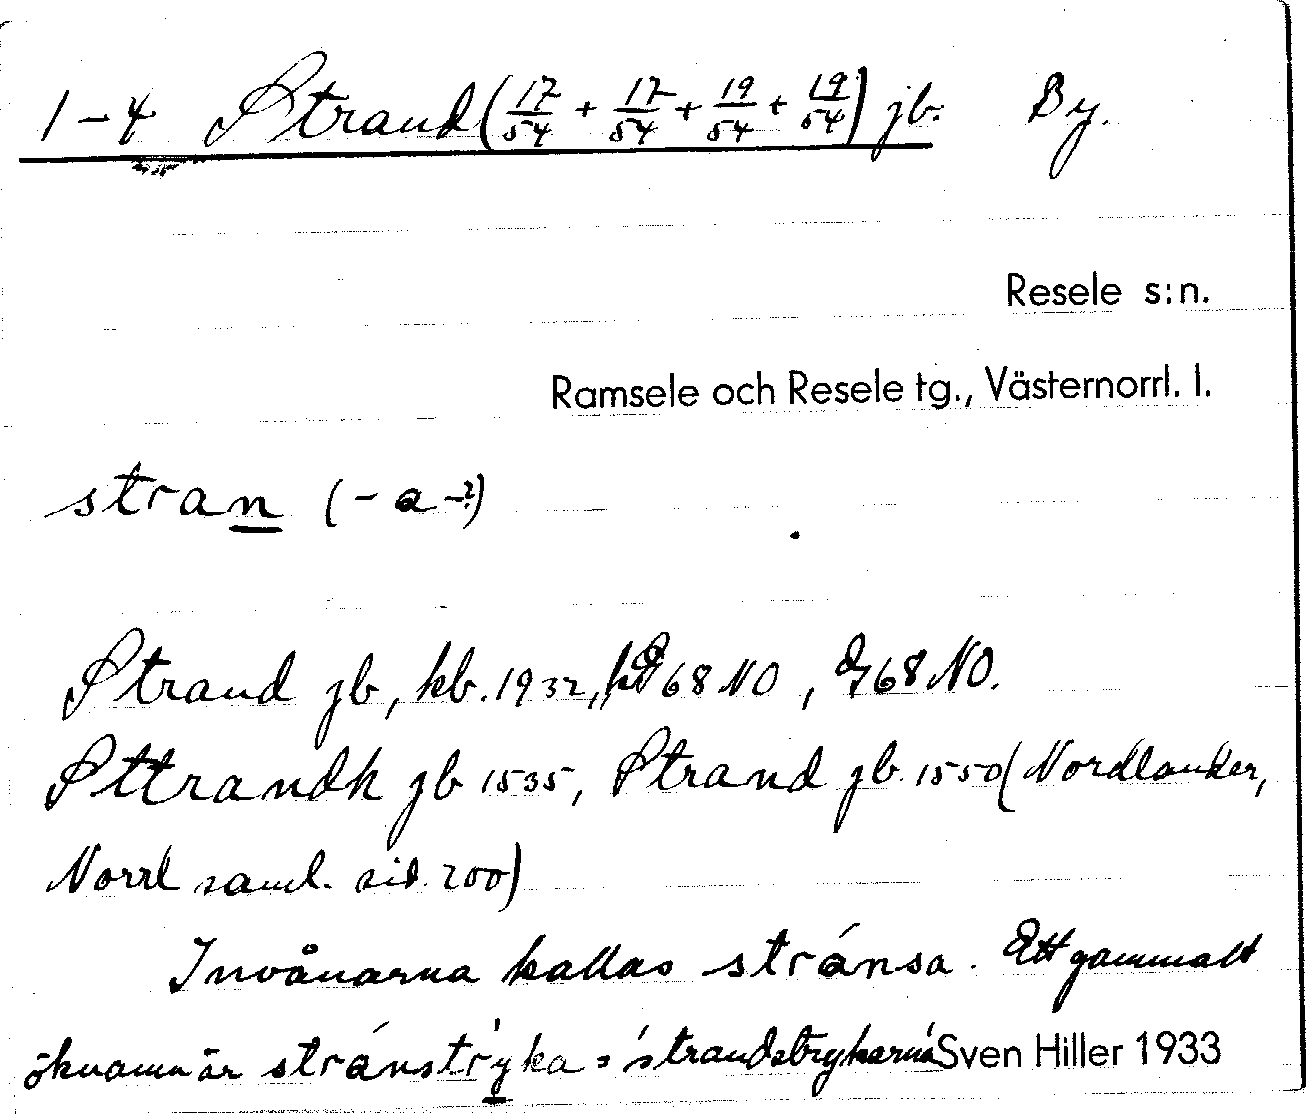 1-4 Strand (17/54 + 17/54 + 19/54 + 19/54) jb. By.
Resele s:n.
Ramsele och Resele tg., Västernorrl. l.
stran (-a-?)
Strand jb, kb. 1932, 68 NO, 68 NO.
Sttrandh jb 1535, Strand jb. 1550 (Nordlander,
Norrl saml. sid. 200)
Invånarna kallas stránsa. Ett gammalt
öknamn är stránstryka = 'strandstrykarna'
Sven Hiller 1933